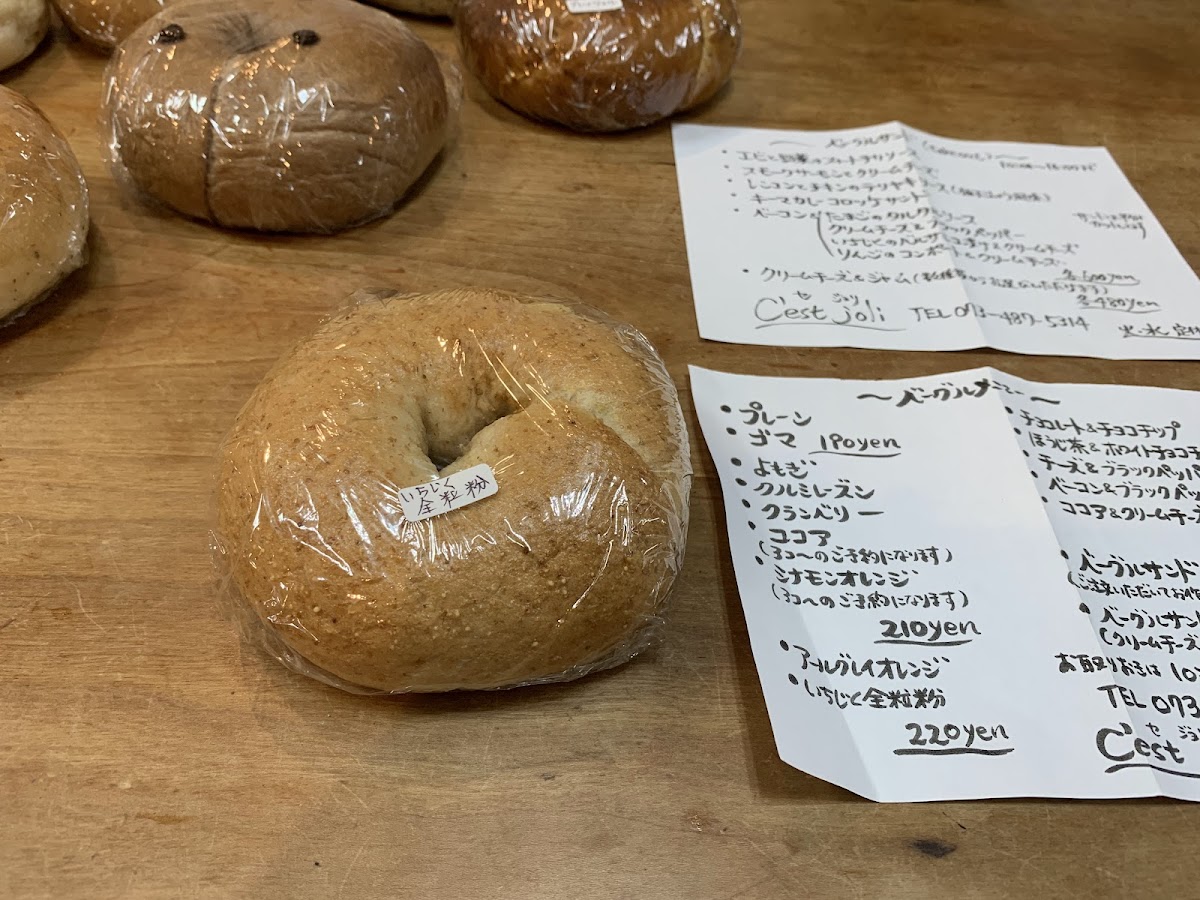 いちじく
全粒粉
・エビと野菜の
・スモークサーモンとクリーム
・レンコンとチキンのテリヤキ
・キーマカレーコロッケサンド
・ベーコンとたまごのタルタルソース
クリームチーズ&ブラックペッパー
りんごのコンポート&クリームチーズ
各600yen
・クリームチーズ&ジャム
各480yen
セ ジョリ
C'est joli TEL 073-487-5314
火・水
〜ベーグルメニュー〜
・プレーン
・ゴマ 190yen
・よもぎ
・クルミレーズン
・クランベリー
・ココア
(3コ〜のご予約になります)
・シナモンオレンジ
(3コ〜のご予約になります)
210yen
・アールグレイオレンジ
・いちじく全粒粉
220yen
・チョコレート&チョコチップ
・ほうじ茶&ホワイトチョコ
・チーズ&ブラックペッパ
・ベーコン&ブラックペッパ
・ココア&クリームチーズ
・ベーグルサンド
(ご注文いただいてお作
・ベーグルサンド
(クリームチーズ
お取りおきは 10
TEL 073
セ ジョ
C'est